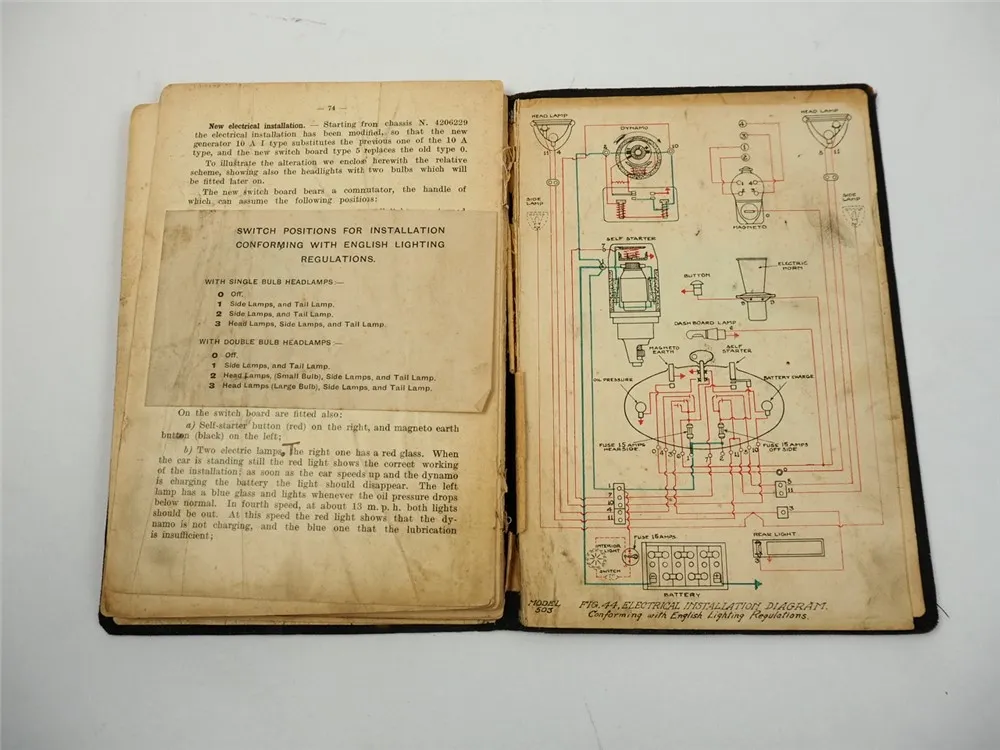 — 74 —
New electrical installation. — Starting from chassis N. 4206229
the electrical installation has been modified, so that the new
generator 10 A 1 type substitutes the previous one of the 10 A
type, and the new switch board type 5 replaces the old type 0.
To illustrate the alteration we enclose herewith the relative
scheme, showing also the headlights with two bulbs which will
be fitted later on.
The new switch board bears a commutator, the handle of
which can assume the following positions:
SWITCH POSITIONS FOR INSTALLATION
CONFORMING WITH ENGLISH LIGHTING
REGULATIONS.
WITH SINGLE BULB HEADLAMPS:—
0 Off.
1 Side Lamps, and Tail Lamp.
2 Side Lamps, and Tail Lamp.
3 Head Lamps, Side Lamps, and Tail Lamp.
WITH DOUBLE BULB HEADLAMPS:—
0 Off.
1 Side Lamps, and Tail Lamp.
2 Head Lamps, (Small Bulb), Side Lamps, and Tail Lamp.
3 Head Lamps (Large Bulb), Side Lamps, and Tail Lamp.
On the switch board are fitted also:
a) Self-starter button (red) on the right, and magneto earth
button (black) on the left;
b) Two electric lamps, the right one has a red glass. When
the car is standing still the red light shows the correct working
of the installation: as soon as the car speeds up and the dynamo
is charging the battery the light should disappear. The left
lamp has a blue glass and lights whenever the oil pressure drops
below normal. In fourth speed, at about 13 m. p. h. both lights
should be out. At this speed the red light shows that the dy-
namo is not charging, and the blue one that the lubrication
is insufficient;
HEAD LAMP
11 4
DYNAMO
8 10
4
3
1
2
HEAD LAMP
11
SIDE
LAMP
MAGNETO
SIDE
LAMP
SELF STARTER
7
BUTTON
ELECTRIC
HORN
DASHBOARD LAMP
MAGNETO
EARTH
SELF
STARTER
OIL PRESSURE
BATTERY CHARGE
FUSE 15 AMPS
NEAR SIDE
FUSE 15 AMPS
OFF SIDE
1
7
10
4
11
5
11
3
INTERIOR
LIGHT
SWITCH
FUSE 15 AMPS
REAR LIGHT
BATTERY
MODEL
503
FIG. 44. ELECTRICAL INSTALLATION DIAGRAM.
Conforming with English Lighting Regulations.